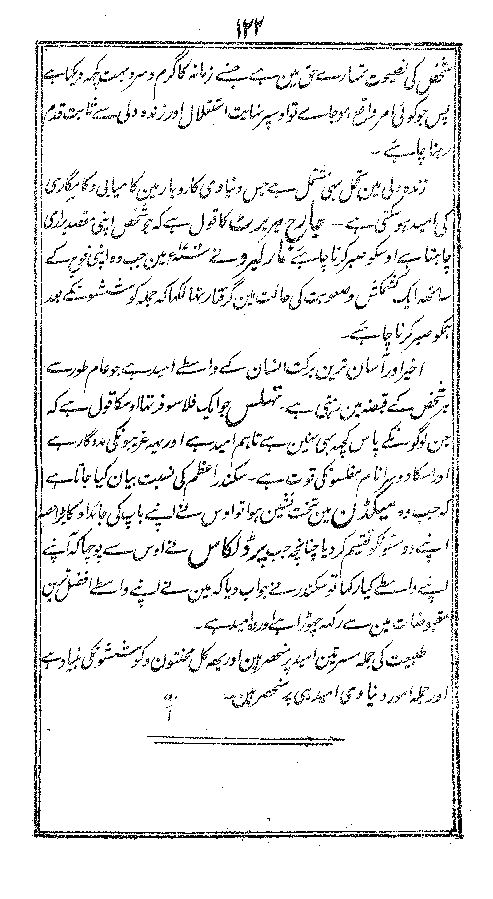 ۱۲۲
شخص کی نصیحت تمہارے حق مین ہے جسنے زمانہ کا گرم و سرد بہت کچہ دیکہا ہے
پس جو کوئی امر واقع ہو جاے تو اوسپر نہایت استقلال اور زندہ دلی سے ثابت قدم
رہنا چاہئے ۔
زندہ دلی مین تحمل بہی شامل ہے جس دنیاوی کاروبار مین کامیابی و کامگاری
کی امید ہوسکتی ہے ۔ جارج ہربرٹ کا قول ہے کہ جو شخص اپنی مقصد براری
چاہتا ہے اوسکو صبر کرنا چاہئے مارکیرو نے مین جب وہ اپنی فوج کے
ساتھہ ایک کشمکش و صعوبت کی حالت مین گرفتار تہا لکہا کہ جملہ کوششونکے بعد
ہمکو صبر کرنا چاہئے ۔
اخیر اور آسان ترین برکت انسان کے واسطے امید ہے جو عام طور سے
ہر شخص کے قبضہ مین رہتی ہے ۔ تہیلس جو ایک فلاسوفر تہا اوسکا قول ہے کہ
جن لوگونکے پاس کچہہ بہی نہین ہے تاہم امید ہے اور یہہ غریبونکی مددگار ہے
اور اسکا دوسرا نام مفلسونکی قوت ہے ۔ سکندر اعظم کی نسبت بیان کیا جاتا ہے
کہ جب وہ میگڈن مین تخت نشین ہوا تو اوس نے اپنے باپ کی جائداد کا بڑا حصہ
اپنے دوستونکو تقسیم کر دیا چنانچہ جب پرڈلکاس نے اوس سے پوچہا کہ آپنے
اپنے واسطے کیا رکہا تو سکندر نے جواب دیا کہ مین نے اپنے واسطے افضل ترین
مقبوضات مین سے رکہہ چہوڑا ہے اور وہ امید ہے ۔
طبیعت کی جملہ مسرتین امید پر منحصر ہین اور یہہ کل محنتون و کوششونکی بنیاد ہے
اور جملہ امور دنیاوی امید ہی پر منحصر ہین ۔